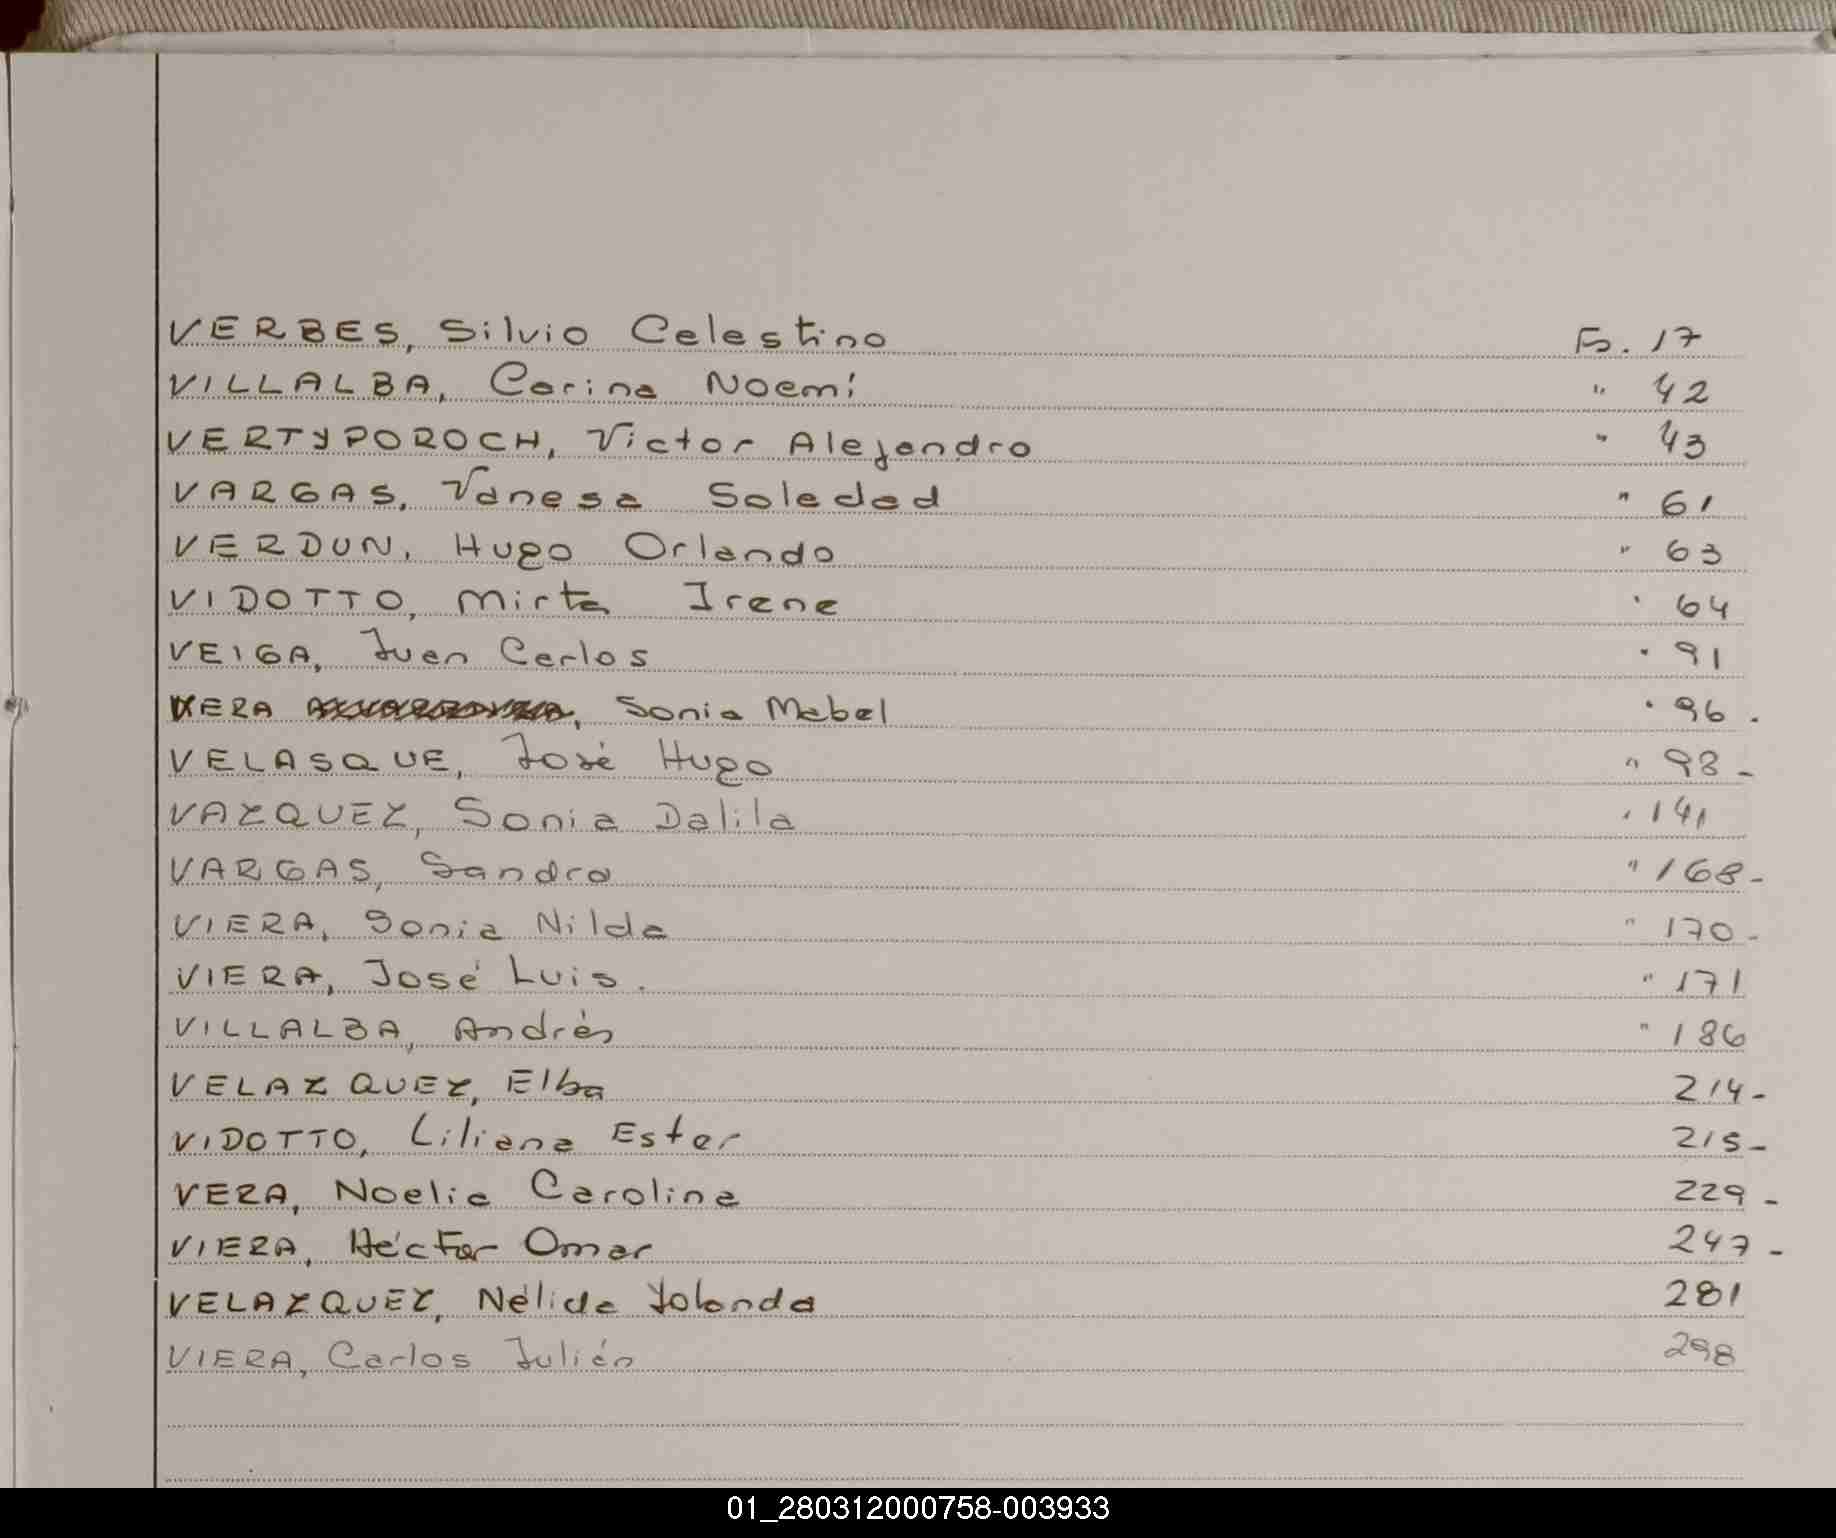 VERBES, Silvio Celestino Fo. 17
VILLALBA, Carina Noemí " 42
VERTYPOROCH, Victor Alejandro " 43
VARGAS, Vanesa Soledad " 61
VERDUN, Hugo Orlando " 63
VIDOTTO, Mirta Irene " 64
VEIGA, Juan Carlos " 91
VERA , Sonia Mabel " 96.
VELASQUE, José Hugo " 98-
VAZQUEZ, Sonia Dalila " 141
VARGAS, Sandra " 168-
VIERA, Sonia Nilda " 170-
VIERA, José Luis. " 171
VILLALBA, Andrés " 186
VELAZQUEZ, Elba 214-
VIDOTTO, Liliana Ester 215-
VERA, Noelia Carolina 229-
VIERA, Héctor Omar 247-
VELAZQUEZ, Nélida Yolanda 281
VIERA, Carlos Julián 298
01_280312000758-003933